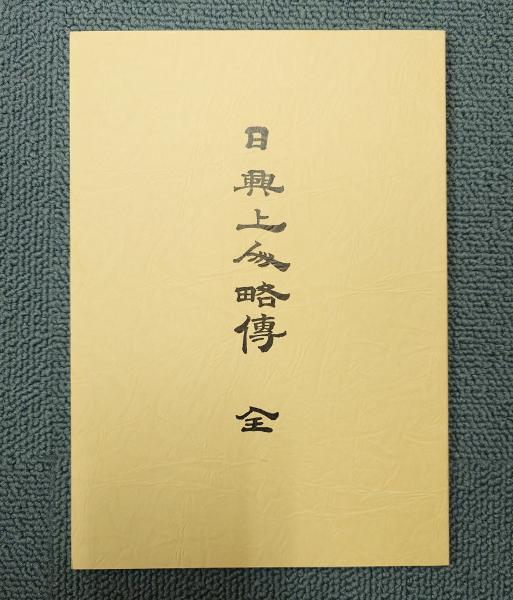 日興上人略傳 全